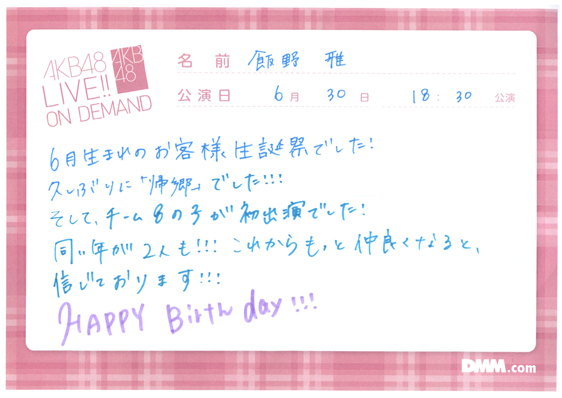 AKB48
LIVE!!
ON DEMAND
AKB
48
名前 飯野 雅
公演日 6月 30日 18:30 公演
6月生まれのお客様生誕祭でした!
久しぶりに「帰郷」でした!!!
そして、チーム8の子が初出演でした!
同い年が2人も!!! これからもっと仲良くなると、
信じております!!!
HAPPY Birthday!!!
DMM.com